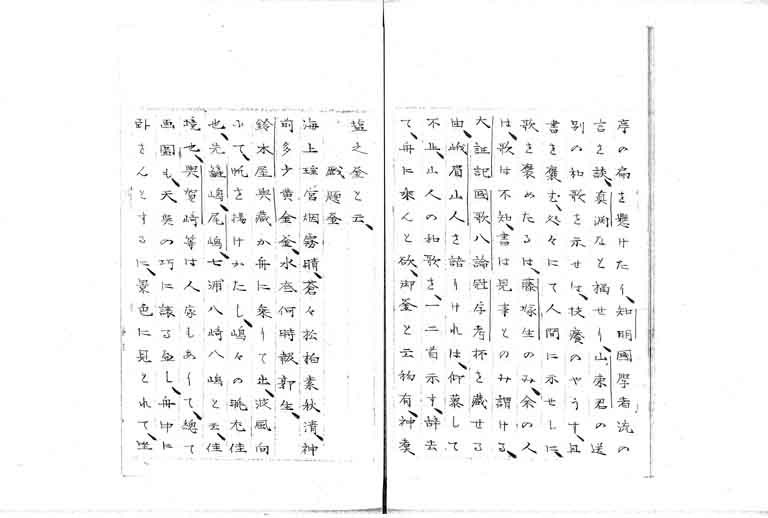 序の扁を懸けたり、知明國學者流の
言を談、真渕なと搞せり、山東君の送
別の和歌を示せは、伎癢のやうす、且
書を褒む、処々にて人間に示せしに、
歌を褒めたるは、藤塚生のみ、余の人
は、歌は不知、書は見事とのみ謂ける、
大証記國歌八論冠字考杯を藏せる
由、峨眉山人を語りけれは、仰慕して
不止、山人の和歌を、一二首示す、辞去
て、舟に乗んと欲、御釜と云物有、神奠
塩之釜と云、
戯題釜
海上瑶宮烟霧晴、蒼々松柏素秋清、神
前多少黄金釜、水底何時報郭生、
鈴木屋與藏か舟に乗りて出、波風向
ふて、帆を揚けかたし、嶋々の眺尤佳
也、先籬嶋尾嶋七浦八崎八嶋と云、佳
境也、與賀崎等は人家もあり、て、總て
画圖も、天奥の巧に譲る豆し、舟中に
卧さんとするに、景色に見とれて、坐